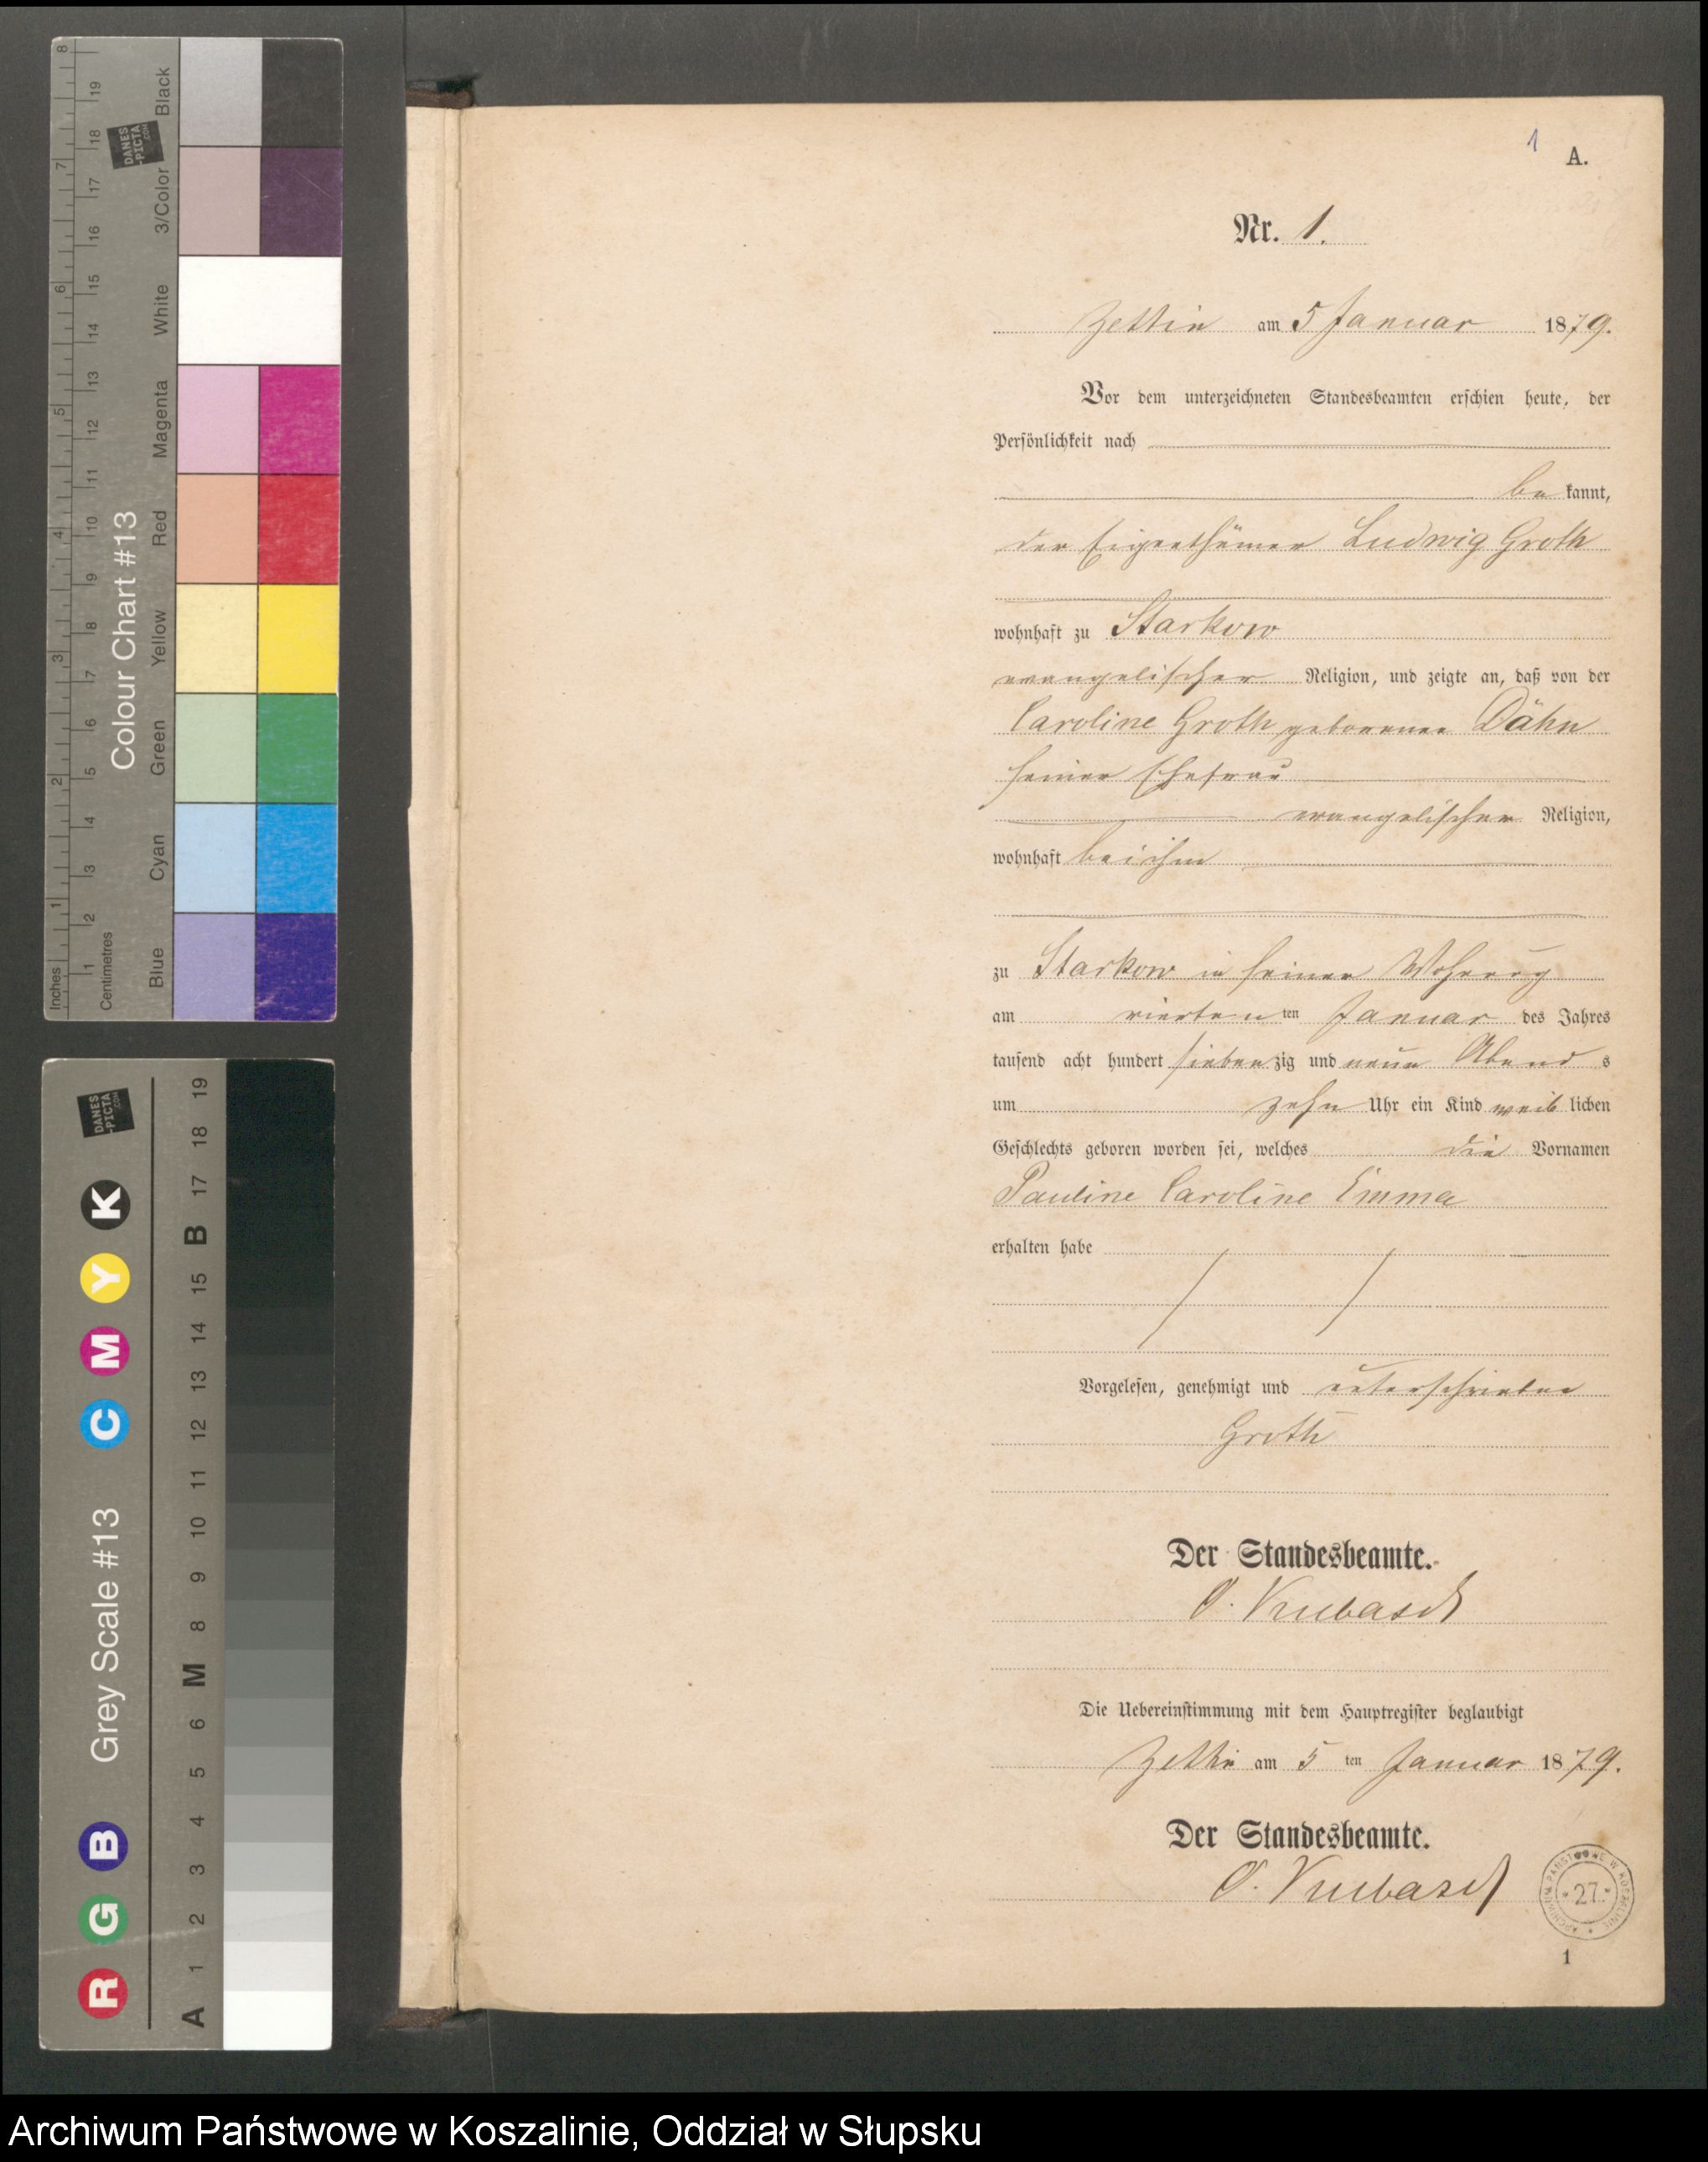 1
A.
Nr. 1.
Zettin am 5 Januar 1879.
Vor dem unterzeichneten Standesbeamten erschien heute, der
Persönlichkeit nach
be kannt,
der Eigenthümer Ludwig Groth
wohnhaft zu Starkow
evangelischer Religion, und zeigte an, daß von der
Caroline Groth geborenen Dähn
seiner Ehefrau
evangelischer Religion,
wohnhaft bei ihm
zu Starkow in seiner Wohnung
am vierten ten Januar des Jahres
tausend acht hundert siebenzig und neun Abend s
um zehn Uhr ein Kind weib lichen
Geschlechts geboren worden sei, welches die Vornamen
Pauline Caroline Emma
erhalten habe
Vorgelesen, genehmigt und unterschrieben
Groth
Der Standesbeamte.
O.
Die Uebereinstimmung mit dem Hauptregister beglaubigt
Zettin am 5 ten Januar 1879.
Der Standesbeamte.
O.
ARCHIWUM PAŃSTWOWE W KOSZALINIE
* 27. *
1
Inches 1 2 3 4 5 6 7 8
Centimetres 1 2 3 4 5 6 7 8 9 10 11 12 13 14 15 16 17 18 19
Colour Chart #13
Blue Cyan Green Yellow Red Magenta White 3/Color Black
DANES
-PICTA
.COM
R G B Grey Scale #13 C M Y K
DANES
-PICTA
.COM
A 1 2 3 4 5 6 M 8 9 10 11 12 13 14 15 B 17 18 19
Archiwum Państwowe w Koszalinie, Oddział w Słupsku